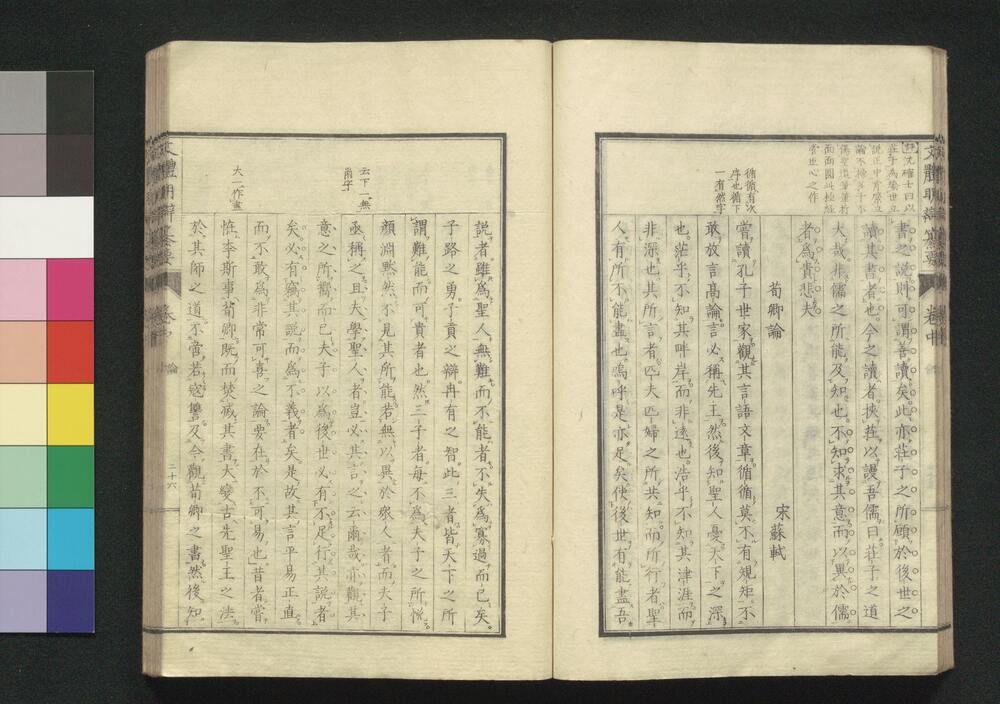 文體明辯纂要
卷中
書之說則可謂善讀矣此亦莊子之所願於後世之
讀其書者也今之讀者挾莊以謾吾儒曰莊子之道
大哉非儒之所能及知也不知求其意而以異於儒
者為貴悲夫
荀卿論
宋蘇軾
循循有次
序也循下
一有然字
嘗讀孔子世家觀其言語文章循循莫不有規矩不
敢放言高論言必稱先王然後知聖人憂天下之深
也茫乎不知其畔岸而非遠也浩乎不知其津涯而
非深也其所言者匹夫匹婦之所共知而所行者聖
人有所不能盡也嗚呼是亦足矣使後世有能盡吾
說者雖為聖人無難而不能者不失為寡過而已矣
子路之勇子貢之辯冉有之智此三者皆天下之所
謂難能而可貴者也然三子者每不為夫子之所悅
顏淵默然不見其所能若無以異於眾人者而夫子
云下一無
爾字
亟稱之且夫學聖人者豈必其言之云爾哉亦觀其
意之所嚮而已夫子以為後世必有不足行其說者
矣必有竊其說而為不義者矣是故其言平易正直
而不敢為非常可喜之論要在於不可易也昔者嘗
大一作盡
怪李斯事荀卿既而焚滅其書大變古先聖王之法
於其師之道不啻若寇讐及今觀荀卿之書然後知
文體明辯纂要
論
二十六